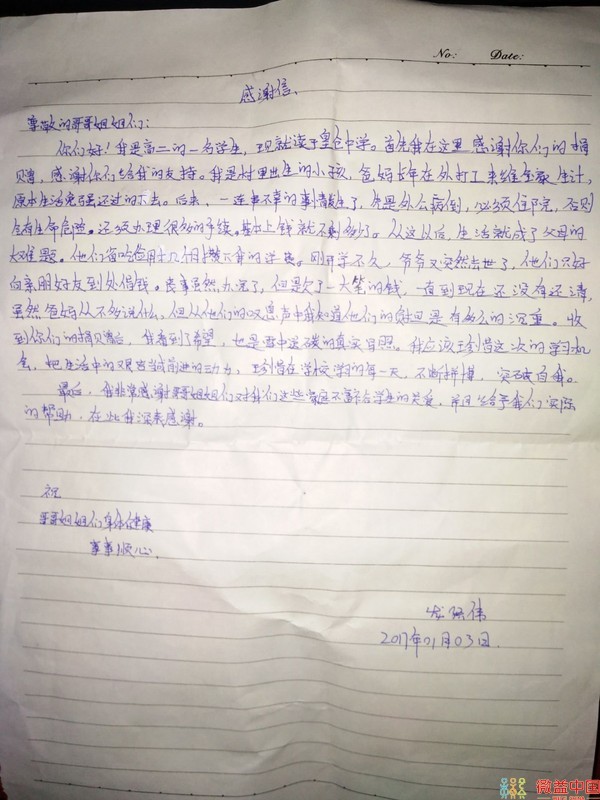 No: Date:
感谢信
尊敬的哥哥姐姐们：
你们好！我是高二的一名学生，现就读于皇仓中学。首先我在这里感谢你们的捐
赠，感谢你们给我的支持。我是村里出生的小孩，爸妈长年在外打工来维全家生计，
原本生活勉强还过的下去。后来，一连串不幸的事情发生了，先是外公病倒，必须住院，否则
会有生命危险。还须办理很多的手续。基本上钱就不剩多少了。从这以后，生活就成了父母的
大难题。他们省吃俭用才几个月攒下来的。刚开学不久，爷爷又突然去世了，他们只好
向亲朋好友到处借钱。丧事虽然办完了，但是欠了一大笔的钱，直到现在还没有还清，
虽然爸妈从不多说什么，但从他们的叹息声中我知道他们的负担是有多么的沉重。收
到你们的捐赠后，我看到了希望，也是雪中送碳的真实写照。我应该珍惜这次的学习机
会，把生活中的艰苦当前进的动力，珍惜在学校学习的每一天，不断拼搏，突破自我。
最后，我非常感谢哥哥姐姐们对我们这些家庭不富裕学生的关爱，并且给予我们实际
的帮助，在此我深表感谢。
祝
哥哥姐姐们身体健康
事事顺心
伟
2017年01月03日
微益中国